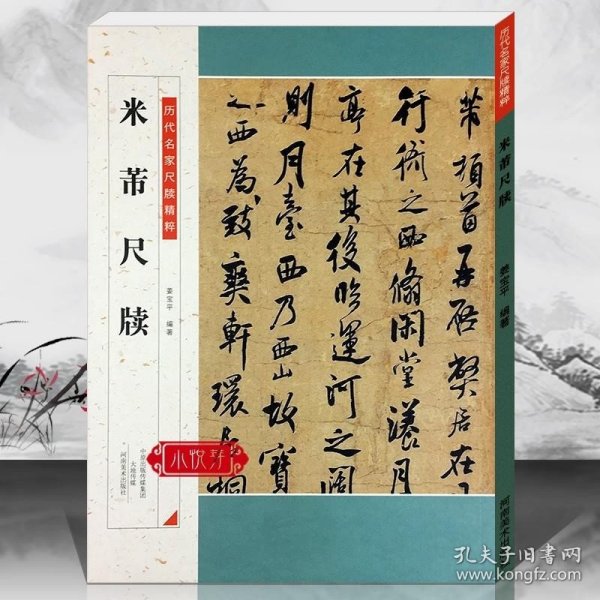 历代名家尺牍精粹
米芾尺牍
姜宝平 编著
中原出版传媒集团
大地传媒
河南美术出版社
芾頓首再啟弊居在
行衙之西翛閑堂漾月
亭在其後臨運河之闊
則月臺西乃西山故寶
之西為致爽軒環居桐
历代名家尺牍精粹
米芾尺牍
姜宝平 编著
河南美术出
孔夫子旧书网
www.kongfz.com